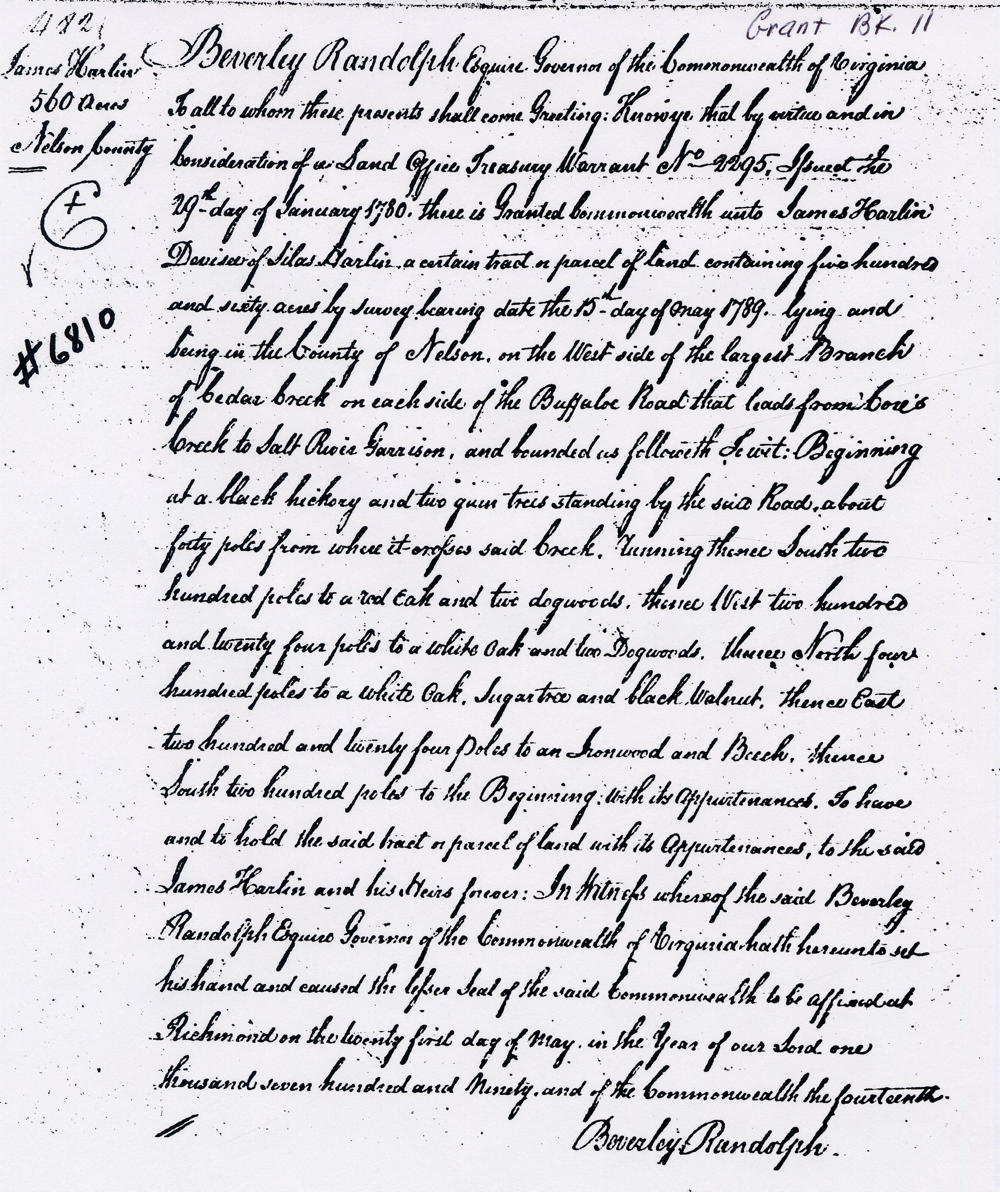 482
Grant Bk. 11
James Harlin
560 Acres
Nelson County
#6810
Beverley Randolph Esquire Governor of the Commonwealth of Virginia
To all to whom these presents shall come Greeting: Know ye that by virtue and in
Consideration of a Land Office Treasury Warrant No 2295. Issued the
29th day of January 1780. there is Granted Commonwealth unto James Harlin
Devisee of Silas Harlin a certain tract or parcel of land containing five hundred
and sixty acres by survey bearing date the 15th day of May 1789. lying and
being in the County of Nelson, on the West side of the largest Branch
of Cedar Creek on each side of the Buffaloe Road that leads from Coxe's
Creek to Salt River Garrison, and bounded as followeth To wit: Beginning
at a black hickory and two gum trees standing by the said Road, about
forty poles from where it crosses said Creek, Running thence South two
hundred poles to a red Oak and two dogwoods, thence West two hundred
and twenty four poles to a white Oak and two Dogwoods. thence North four
hundred poles to a white Oak, Sugartree and black Walnut, thence East
two hundred and twenty four Poles to an Ironwood and Beech, thence
South two hundred poles to the Beginning: with its Appurtenances. To have
and to hold the said tract or parcel of land with its Appurtenances, to the said
James Harlin and his Heirs forever: In Witness whereof the said Beverley
Randolph Esquire Governor of the Commonwealth of Virginia hath hereunto set
his hand and caused the lesser Seal of the said Commonwealth to be affixed at
Richmond on the twenty first day of May. in the Year of our Lord one
thousand seven hundred and Ninety. and of the Commonwealth the fourteenth.
Beverley Randolph.